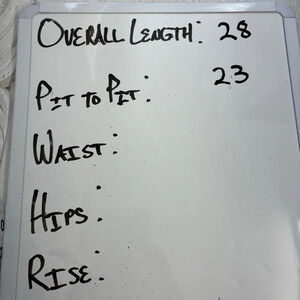 OVERALL LENGTH: 28
PIT TO PIT: 23
WAIST:
HIPS:
RISE: